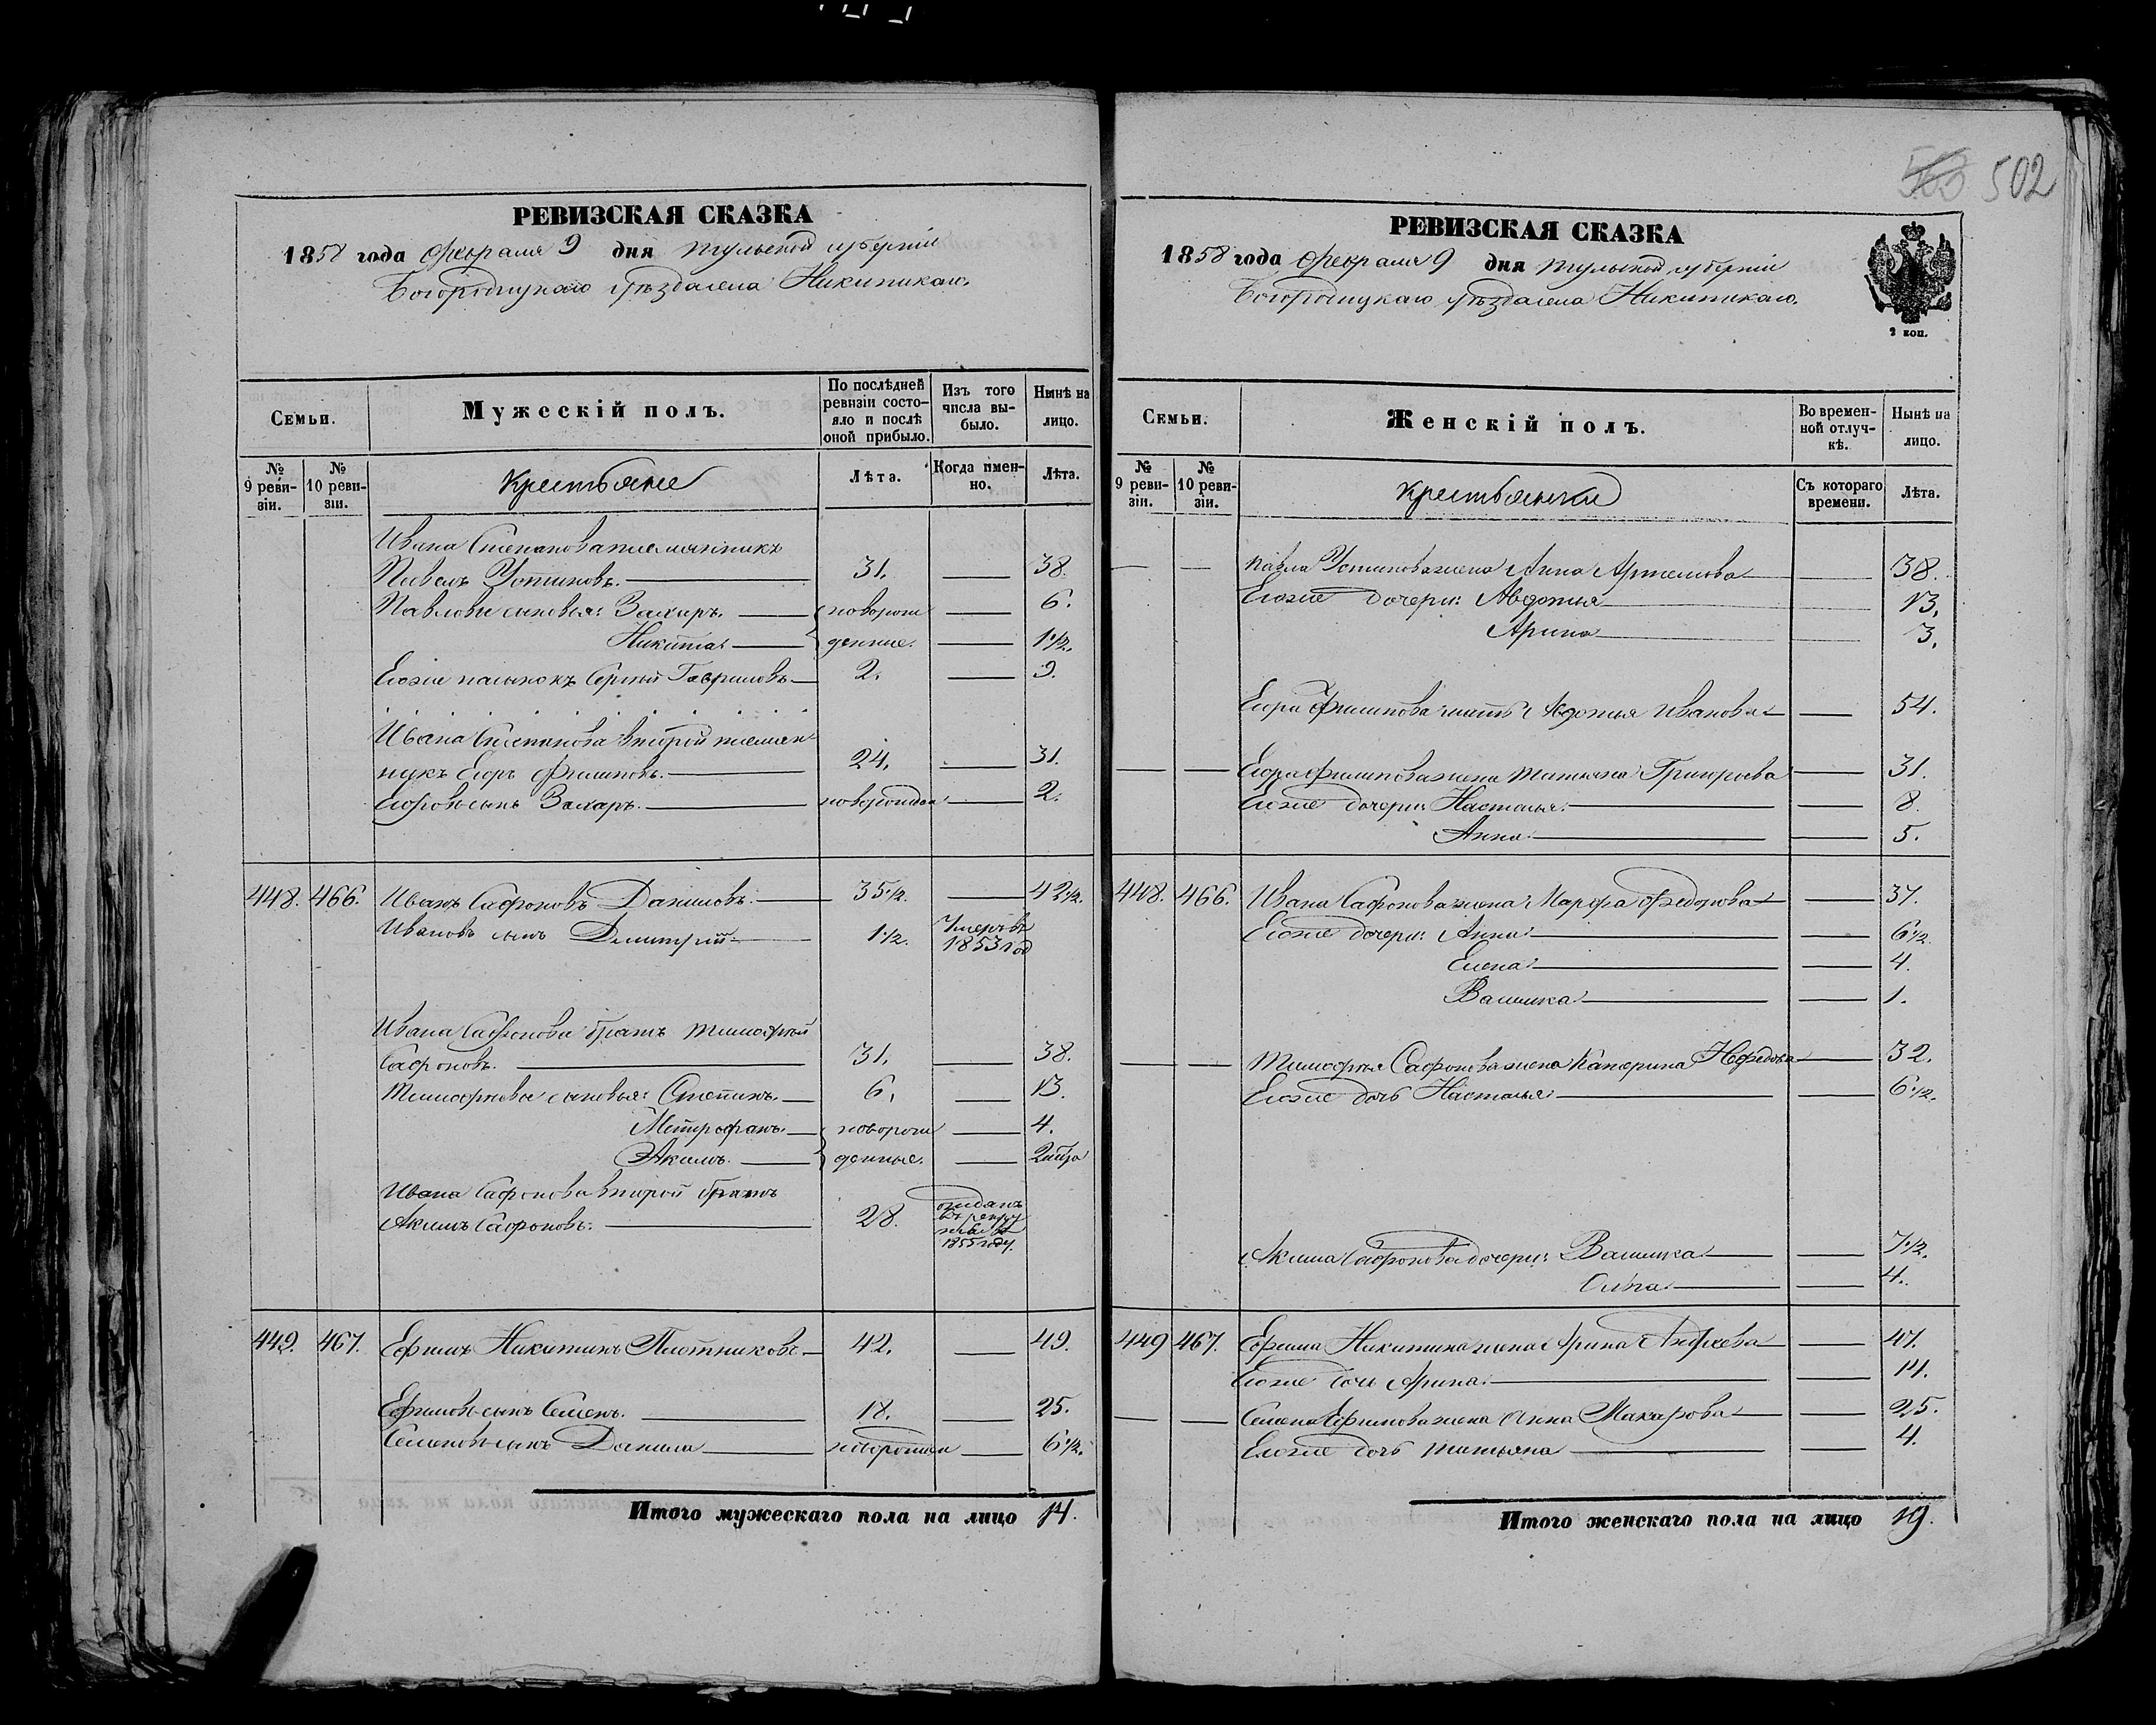 502
РЕВИЗСКАЯ СКАЗКА
1858 года Февраля 9 дня Тульской губернии
Богородицкаго уѣзда села Никитскаго.
Семьи.
Мужескій полъ.
По послѣдней ревизіи состояло и послѣ оной прибыло.
Изъ того числа выбыло.
Нынѣ на лицо.
№ 9 ревизіи.
№ 10 ревизіи.
Крестьяне
Лѣта.
Когда именно.
Лѣта.
Ивана Степанова племянникъ
Павелъ Устиновъ. 31. 38.
Павловы сыновья: Захаръ. новорож 6.
Никита. денные. 1 1/2.
Егоже пасынокъ Сергѣй Гавриловъ 2. 9.
Ивана Степанова второй племян
никъ Егоръ Филиповъ. 24. 31.
Егоровъ сынъ Захаръ. новорожден 2.
448. 466. Иванъ Сафоновъ Даниловъ. 35 1/2. 42 1/2.
Ивановъ сынъ Дмитрій 1 1/2. Умеръ въ 1853 год
Ивана Сафонова братъ Тимофей
Сафоновъ. 31. 38.
Тимофеевы сыновья: Степанъ. 6. 13.
Метрофанъ. новорож 4.
Акимъ. денные. 2
Ивана Сафонова второй братъ
Акимъ Сафоновъ. 28. отданъ въ рекру 1855 году.
449. 467. Ефимъ Никитинъ Плотниковъ 42. 49.
Ефимовъ сынъ Семенъ. 18. 25.
Семеновъ сынъ Данила новорожден 6 1/2.
Итого мужескаго пола на лицо 14.
РЕВИЗСКАЯ СКАЗКА
1858 года Февраля 9 дня Тульской губернии
Богородицкаго уѣзда села Никитскаго.
2 коп.
Семьи.
Женскій полъ.
Во временной отлучкѣ.
Нынѣ на лицо.
№ 9 ревизіи.
№ 10 ревизіи.
Крестьянки
Съ котораго времени.
Лѣта.
Павла Устинова жена Анна Артемова 38.
Егоже дочери: Авдотья 13.
Арина 3.
Егора Филипова мать Авдотья Иванова 54.
Егора Филипова жена Татьяна Григорьева 31.
Егоже дочери: Настасья. 8.
Анна 5.
448. 466. Ивана Сафонова жена Марфа Федорова 37.
Егоже дочери: Анна 6 1/2.
Елена 4.
Василиса 1.
Тимофея Сафонова жена Катерина Нефедова 32.
Егоже дочь Настасья 6 1/2.
Акима Сафонова дочери: Василиса 7 1/2.
4.
449 467. Ефима Никитина жена Арина Андреева 47.
Егоже дочь Арина. 14.
Семена Ефимова жена Анна Макарова 25.
Егоже дочь Татьяна 4.
Итого женскаго пола на лицо 19.